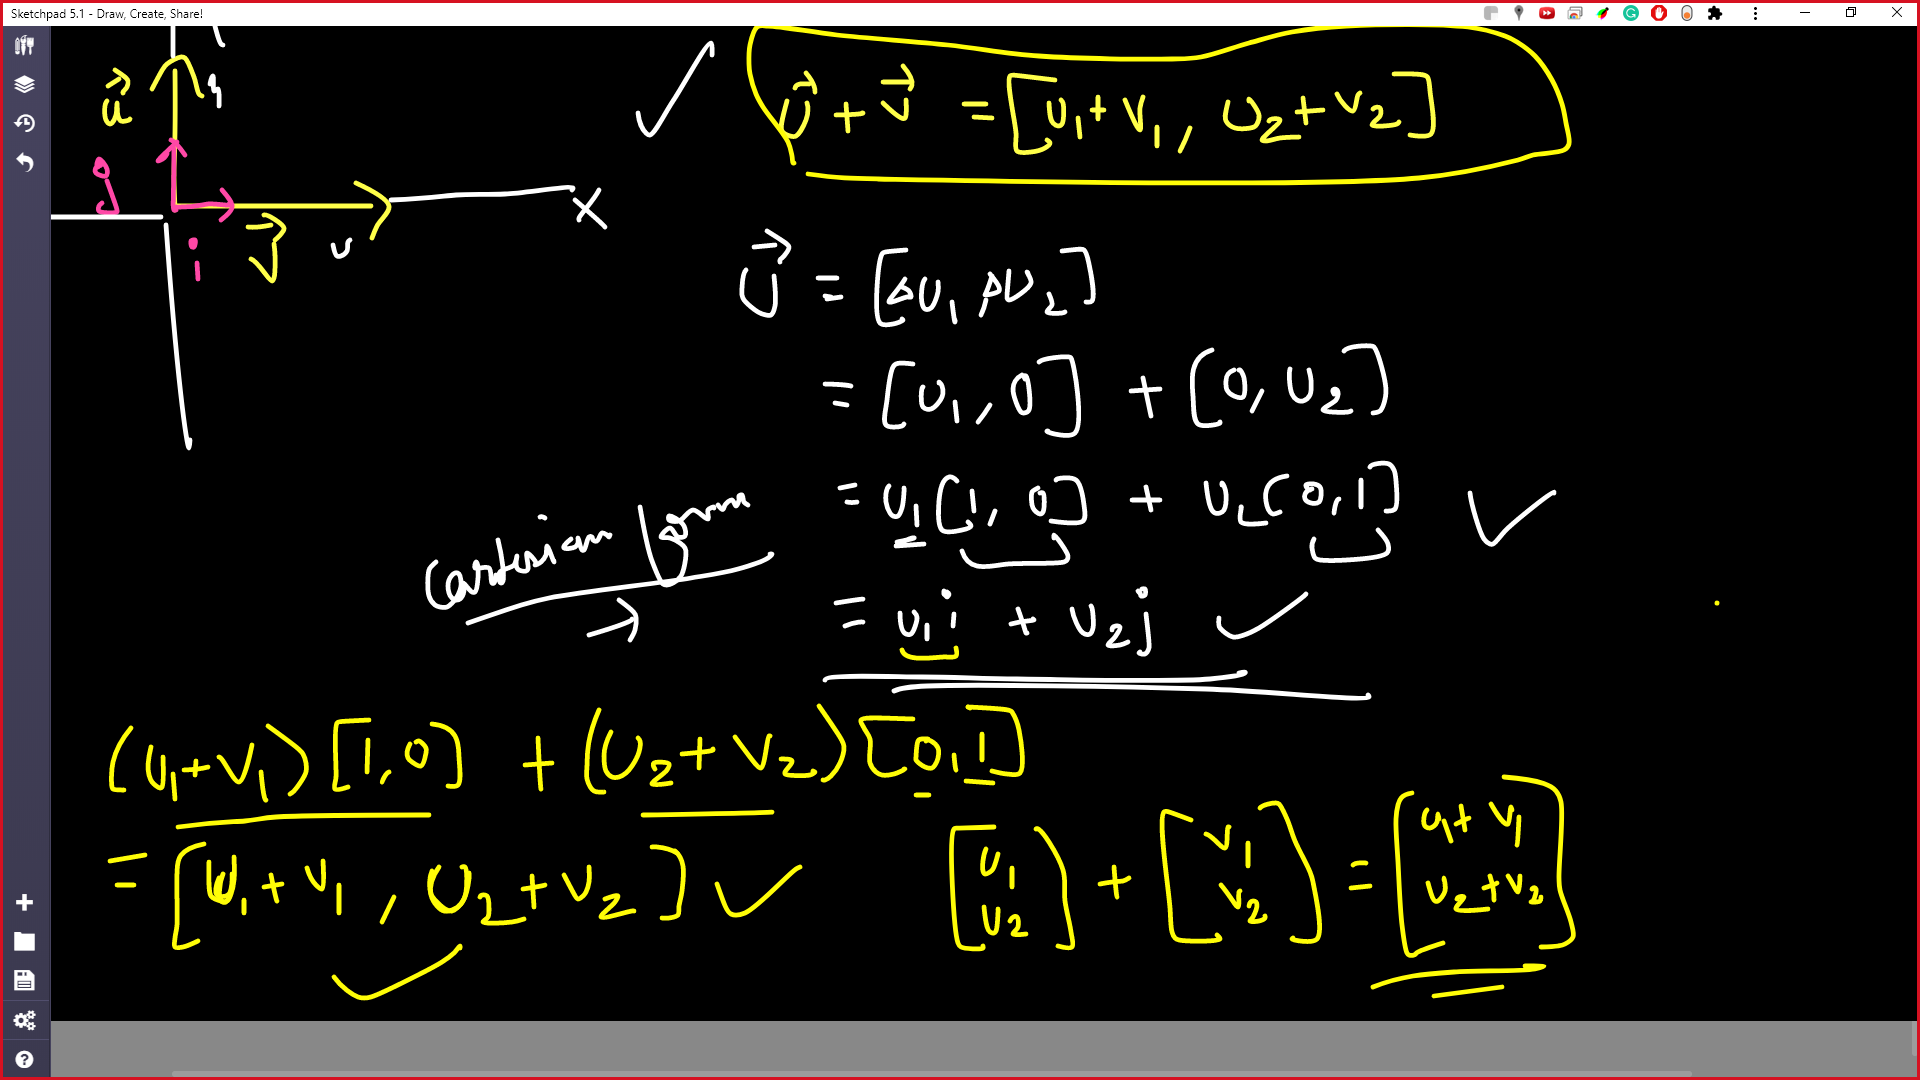 Sketchpad 5.1 - Draw, Create, Share!
u⃗
j
i
v⃗
x
u⃗ + v⃗ = [u₁+v₁, u₂+v₂]
u⃗ = [Δu₁, Δu₂]
= [u₁, 0] + [0, u₂]
= u₁[1, 0] + u₂[0, 1]
Cartesian form
→
= u₁i + u₂j
(u₁+v₁)[1,0] + (u₂+v₂)[0,1]
= [u₁+v₁, u₂+v₂]
[u₁ u₂] + [v₁ v₂] = [u₁+v₁ u₂+v₂]